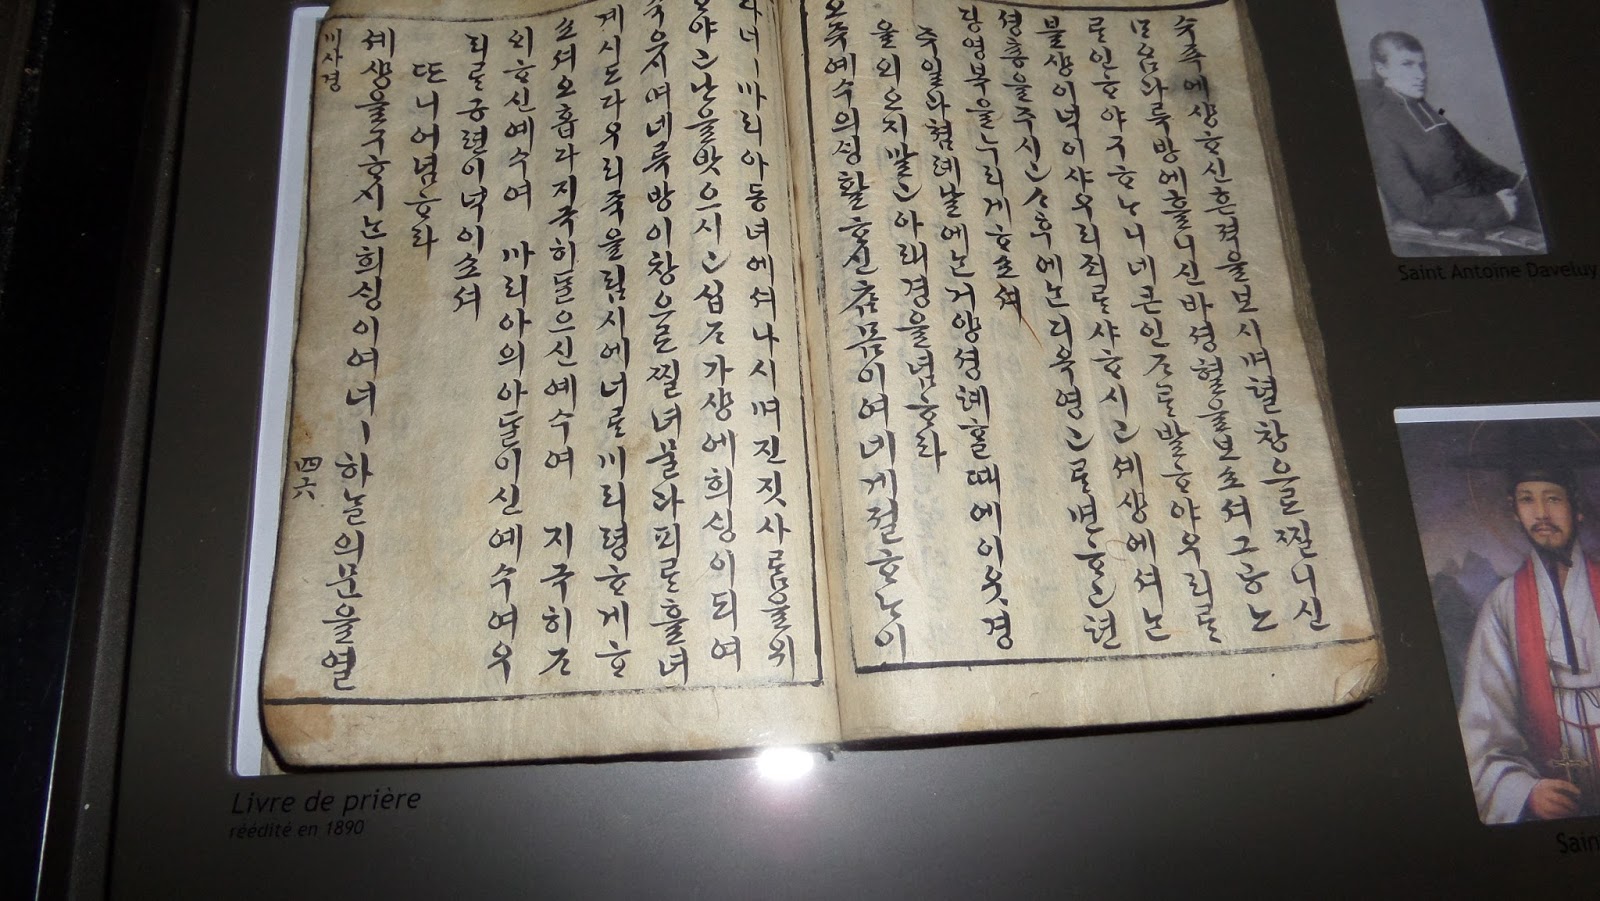 수죡에샹ᄒᆞ신흔젹을보시며텰창으로찔니신
ᄆᆞ음과륵방에흘니신바셩혈을보쇼셔그ᄅᆞᆯ인ᄒᆞ야구ᄒᆞᄂᆞ니네큰인ᄌᆞᄅᆞᆯ발ᄒᆞ야우리ᄅᆞᆯ
불샹이넉이샤우리죄ᄅᆞᆯ샤ᄒᆞ시고셰샹에셔ᄂᆞᆫ
셩춍을주시고ᄉᆞ후에ᄂᆞᆫ디옥영고ᄅᆞᆯ면ᄒᆞ고텬
당영복을누리게ᄒᆞ쇼셔
쥬일과쳠례날에ᄂᆞᆫ거양셩톄ᄒᆞᆯ때에이웃경
을외오지말고아래경을념ᄒᆞ라
오쥬예수의셩활ᄒᆞ신ᄎᆞᆷ몸이여네게절ᄒᆞᄂᆞ이
다너ㅣ마리아동녀에셔나시며진짓사ᄅᆞᆷ을위
ᄒᆞ야고난을밧으시고십ᄌᆞ가샹에희싱이되여
죽은지여네륵방이창으로찔녀물과피ᄅᆞᆯ흘녀
계시도다우리죽을림시에너ᄅᆞᆯ미리령ᄒᆞ게ᄒᆞ
쇼셔오홉다지극히됴흐신예수여 지극히ᄌᆞ
이ᄒᆞ신예수여 마리아의아ᄃᆞᆯ이신예수여우
리ᄅᆞᆯ긍련이넉이쇼셔
또니어념ᄒᆞ라
셰샹을구ᄒᆞ시ᄂᆞᆫ희싱이여너ㅣ하ᄂᆞᆯ의문을열
미사경
四六
Livre de prière
réédité en 1890
Saint Antoine Daveluy